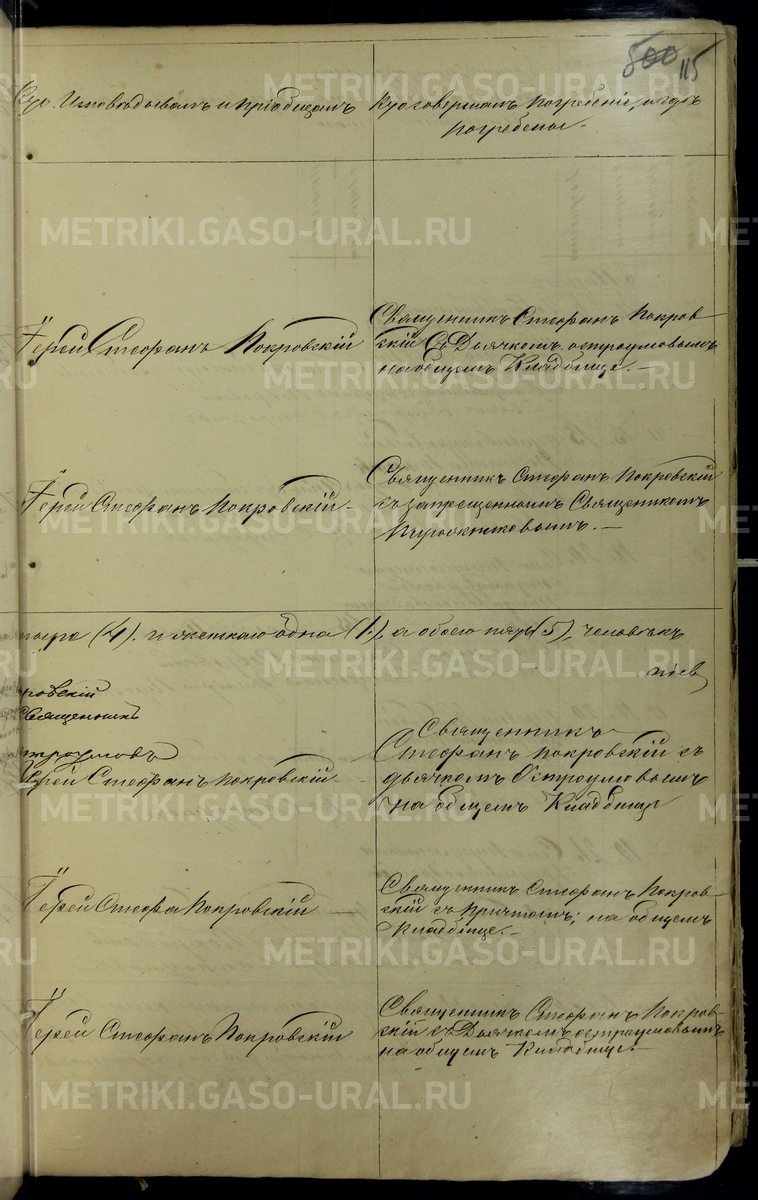 500 115
Кто исповѣдывалъ и пріобщалъ
Кто совершалъ погребеніе, и гдѣ
погребены.
Іерей Стефанъ Покровскій
Священникъ Стефанъ Покров-
скій съ Дьячкомъ остроумовымъ
на общемъ Кладбище.—
Іерей Стефанъ Покровскій.—
Священникъ Стефанъ Покровскій
съ запрещеннымъ Священикомъ
(4). и женскаго одна (1.), а обоего пять (5), человѣкъ
ровскій
Священникъ
строумовъ
Іерей Стефанъ Покровскій
Священникъ
Стефанъ Покровскій съ
дьячкомъ Остроумовымъ
на общемъ Кладбище
Іерей Стефа Покровскій —
Священникъ Стефанъ Покров-
скій съ причтомъ; на общемъ
Кладбище.—
Іерей Стефанъ Покровскій
Священникъ Стефанъ Покров-
скій съ Дьячкомъ остроумовымъ
на общемъ Кладбище.—
METRIKI.GASO-URAL.RU